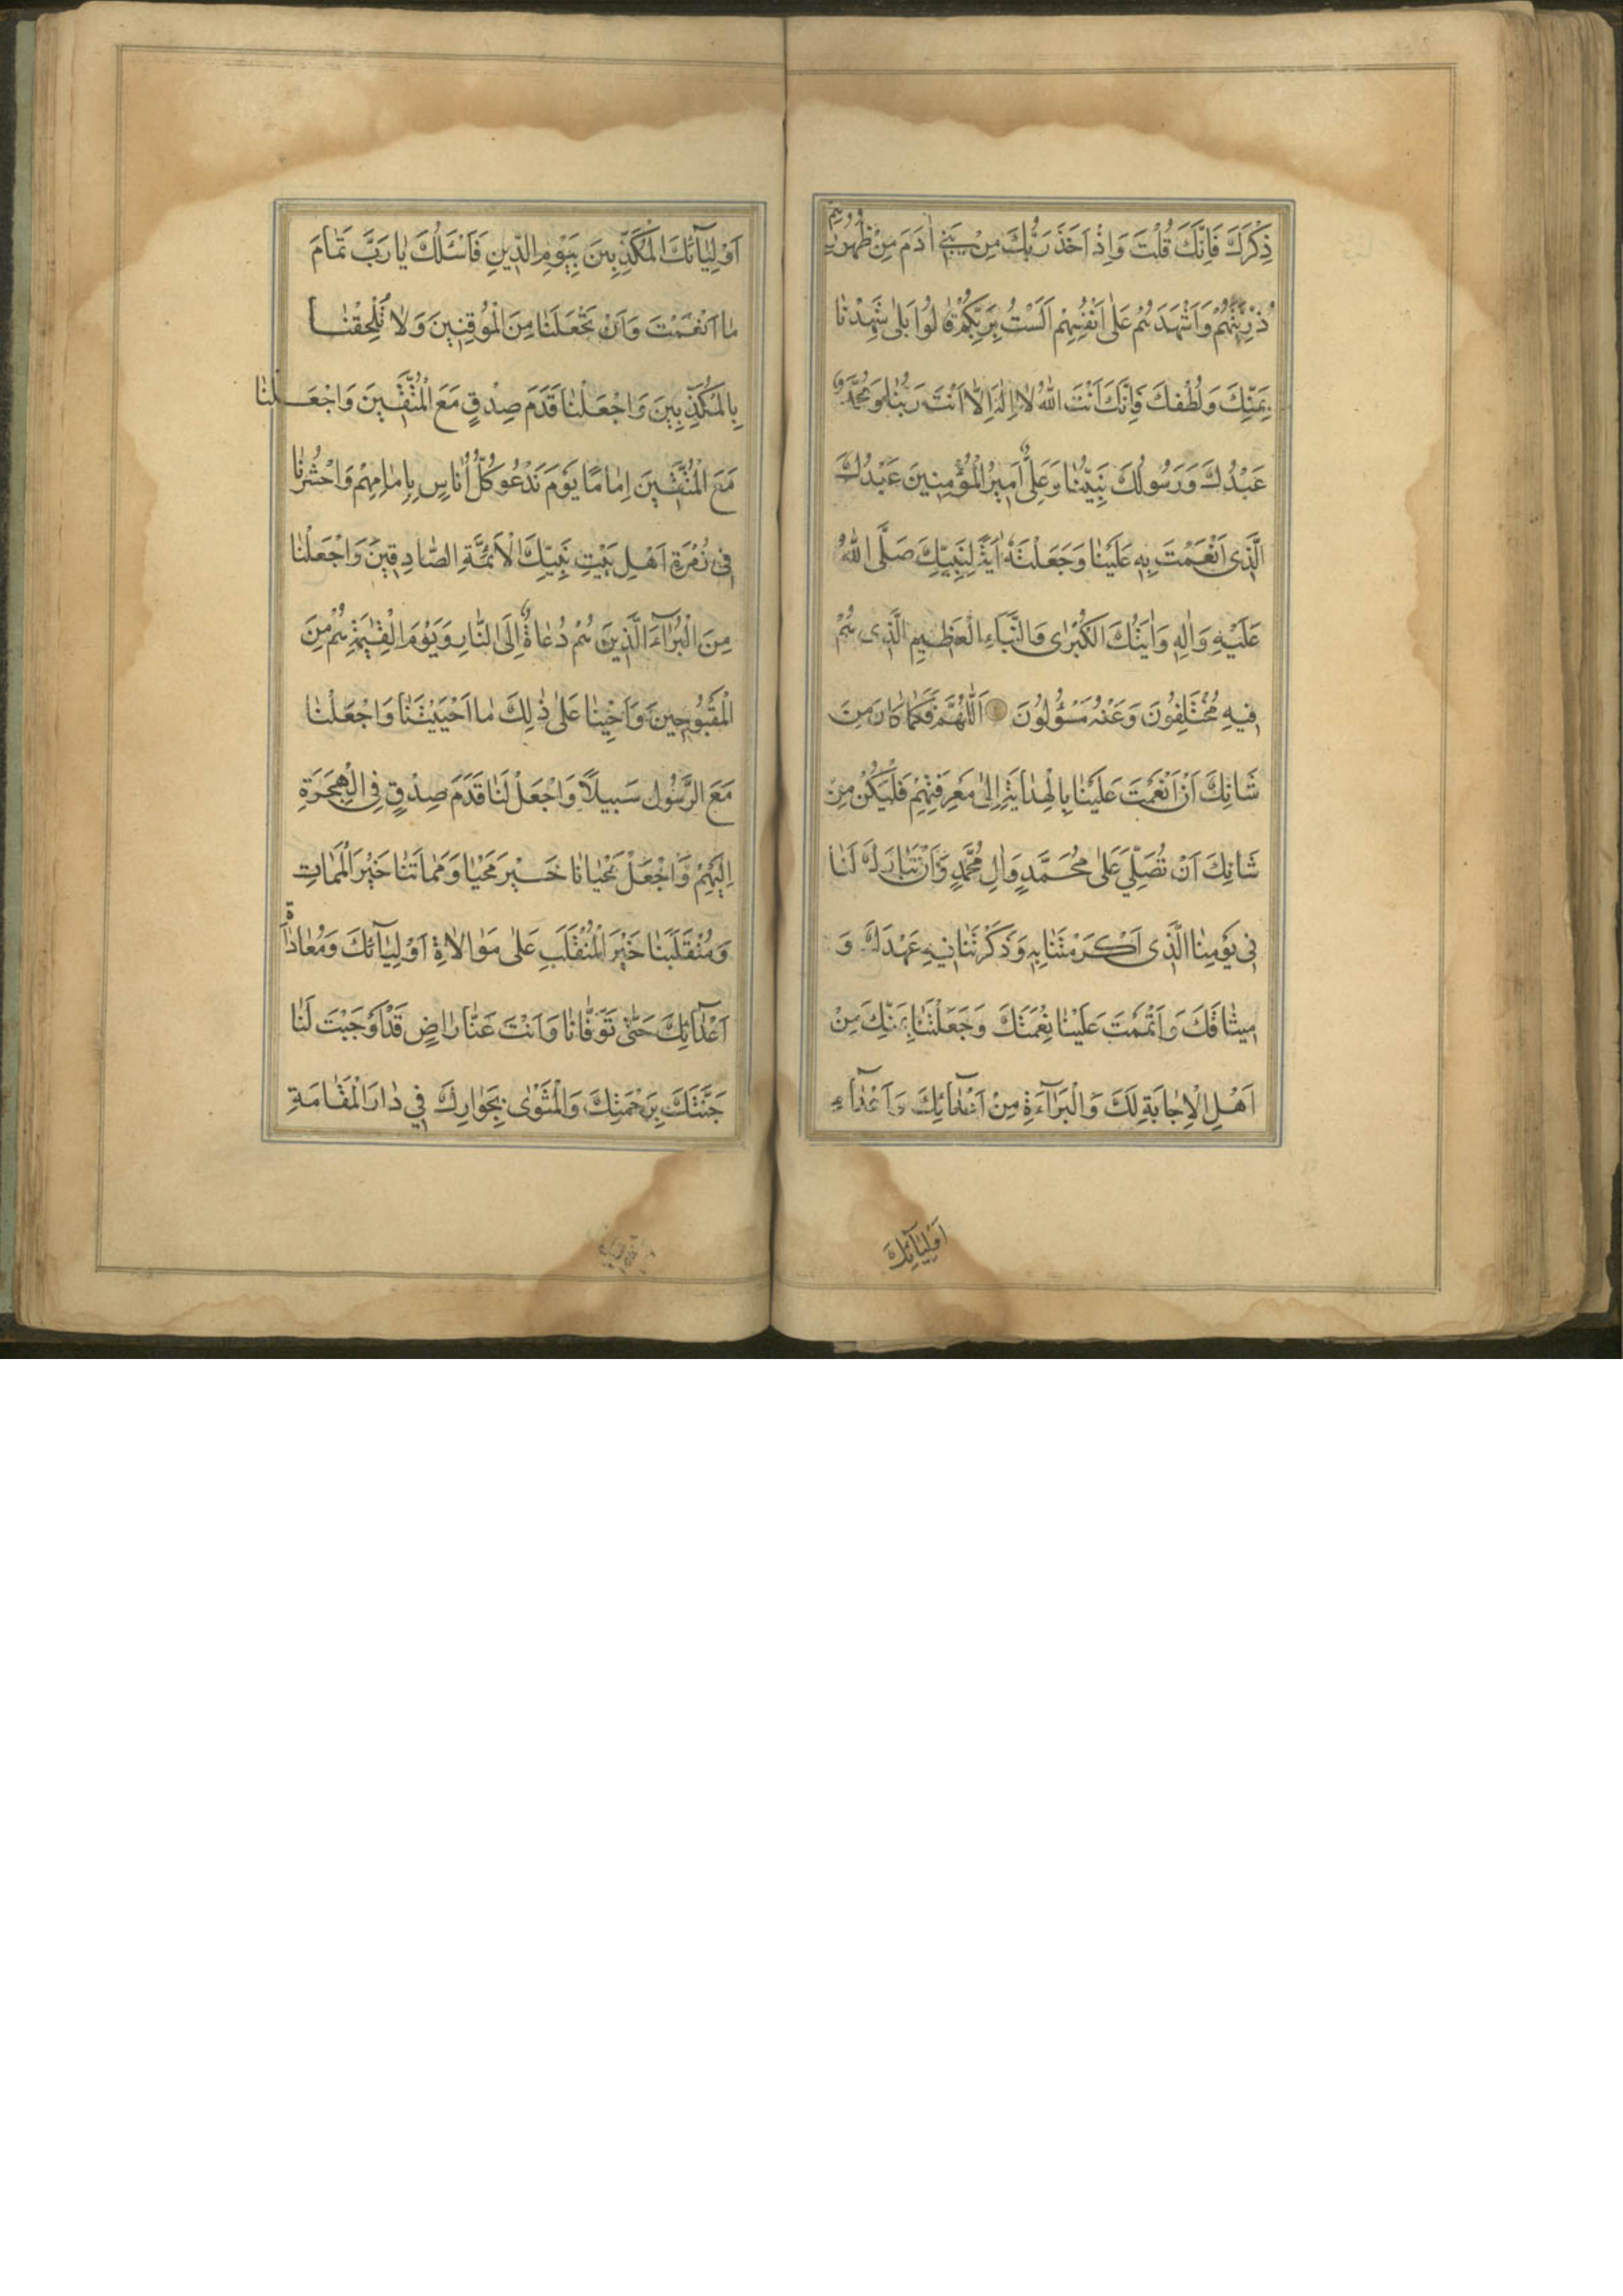 ذِكْرَكَ فَاِنَّكَ قُلْتَ وَاِذْ اَخَذَ رَبُّكَ مِنْ بَنِي اٰدَمَ مِنْ ظُهُورِهِمْ
ذُرِّيَّتَهُمْ وَاَشْهَدَهُمْ عَلٰى اَنْفُسِهِمْ اَلَسْتُ بِرَبِّكُمْ قٰالُوا بَلٰى شَهِدْنٰا
بِمَنِّكَ وَلُطْفِكَ فَاِنَّكَ اَنْتَ اللّٰهُ لٰا اِلٰهَ اِلّٰا اَنْتَ رَبُّنٰا وَمُحَمَّدٌ
عَبْدُكَ وَرَسُولُكَ نَبِيُّنٰا وَعَلِيٌّ اَمِيرُ الْمُؤْمِنِينَ عَبْدُكَ
الَّذِى اَنْعَمْتَ بِهِ عَلَيْنٰا وَجَعَلْتَهُ اٰيَةً لِنَبِيِّكَ صَلَّى اللّٰهُ
عَلَيْهِ وَاٰلِهِ وَاٰيَتُكَ الْكُبْرٰى وَالنَّبَاءِ الْعَظِيمِ الَّذِى هُمْ
فِيهِ مُخْتَلِفُونَ وَعَنْهُ مَسْؤُلُونَ اَللّٰهُمَّ فَكَمٰا كٰانَ مِنْ
شَانِكَ اَنْ اَنْعَمْتَ عَلَيْنٰا بِالْهِدٰايَةِ اِلٰى مَعْرِفَتِهِمْ فَلْيَكُنْ مِنْ
شَانِكَ اَنْ تُصَلِّيَ عَلٰى مُحَمَّدٍ وَاٰلِ مُحَمَّدٍ وَاَنْ تُبٰارِكَ لَنٰا
فِى يَوْمِنٰا الَّذِى اَكْرَمْتَنٰا بِهِ وَذَكَّرْتَنٰا فِيهِ عَهْدَكَ وَ
مِيثٰاقَكَ وَاَتْمَمْتَ عَلَيْنٰا نِعْمَتَكَ وَجَعَلْتَنٰا بِمَنِّكَ مِنْ
اَهْلِ الْاِجٰابَةِ لَكَ وَالْبَرٰآءَةِ مِنْ اَعْدٰآئِكَ وَاَعْدٰآءِ
اَوْلِيٰآئِكَ
اَوْلِيٰآئِكَ الْمُكَذِّبِينَ بِيَوْمِ الدِّينِ فَاَسْئَلُكَ يٰا رَبَّ تَمٰامَ
مٰا اَنْعَمْتَ وَاَنْ تَجْعَلَنٰا مِنَ الْمُوقِنِينَ وَلٰا تُلْحِقْنٰا
بِالْمُكَذِّبِينَ وَاجْعَلْ لَنٰا قَدَمَ صِدْقٍ مَعَ الْمُتَّقِينَ وَاجْعَلْنٰا
مَعَ الْمُتَّقِينَ اِمٰامًا يَوْمَ نَدْعُو كُلَّ اُنٰاسٍ بِاِمٰامِهِمْ وَاحْشُرْنٰا
فِى زُمْرَةِ اَهْلِ بَيْتِ نَبِيِّكَ الْاَئِمَّةِ الصّٰادِقِينَ وَاجْعَلْنٰا
مِنَ الْبُرَآءَ الَّذِينَ هُمْ دُعٰاةٌ اِلَى النّٰارِ وَيَوْمَ الْقِيٰمَةِ هُمْ مِنَ
الْمَقْبُوحِينَ وَاَحْيِنٰا عَلٰى ذٰلِكَ مٰا اَحْيَيْتَنٰا وَاجْعَلْ لَنٰا
مَعَ الرَّسُولِ سَبِيلًا وَاجْعَلْ لَنٰا قَدَمَ صِدْقٍ فِى الْهِجْرَةِ
اِلَيْهِمْ وَاجْعَلْ مَحْيٰانٰا خَيْرَ مَحْيٰا وَمَمٰاتَنٰا خَيْرَ الْمَمٰاتِ
وَمُنْقَلَبَنٰا خَيْرَ الْمُنْقَلَبِ عَلٰى مَوٰالٰاةِ اَوْلِيٰآئِكَ وَمُعٰادٰاةِ
اَعْدٰآئِكَ حَتّٰى تَوَفّٰانٰا وَاَنْتَ عَنّٰا رٰاضٍ قَدْ اَوْجَبْتَ لَنٰا
جَنَّتَكَ بِرَحْمَتِكَ وَالْمَثْوٰى بِجَوٰارِكَ فِي دٰارِ الْمَقٰامَةِ